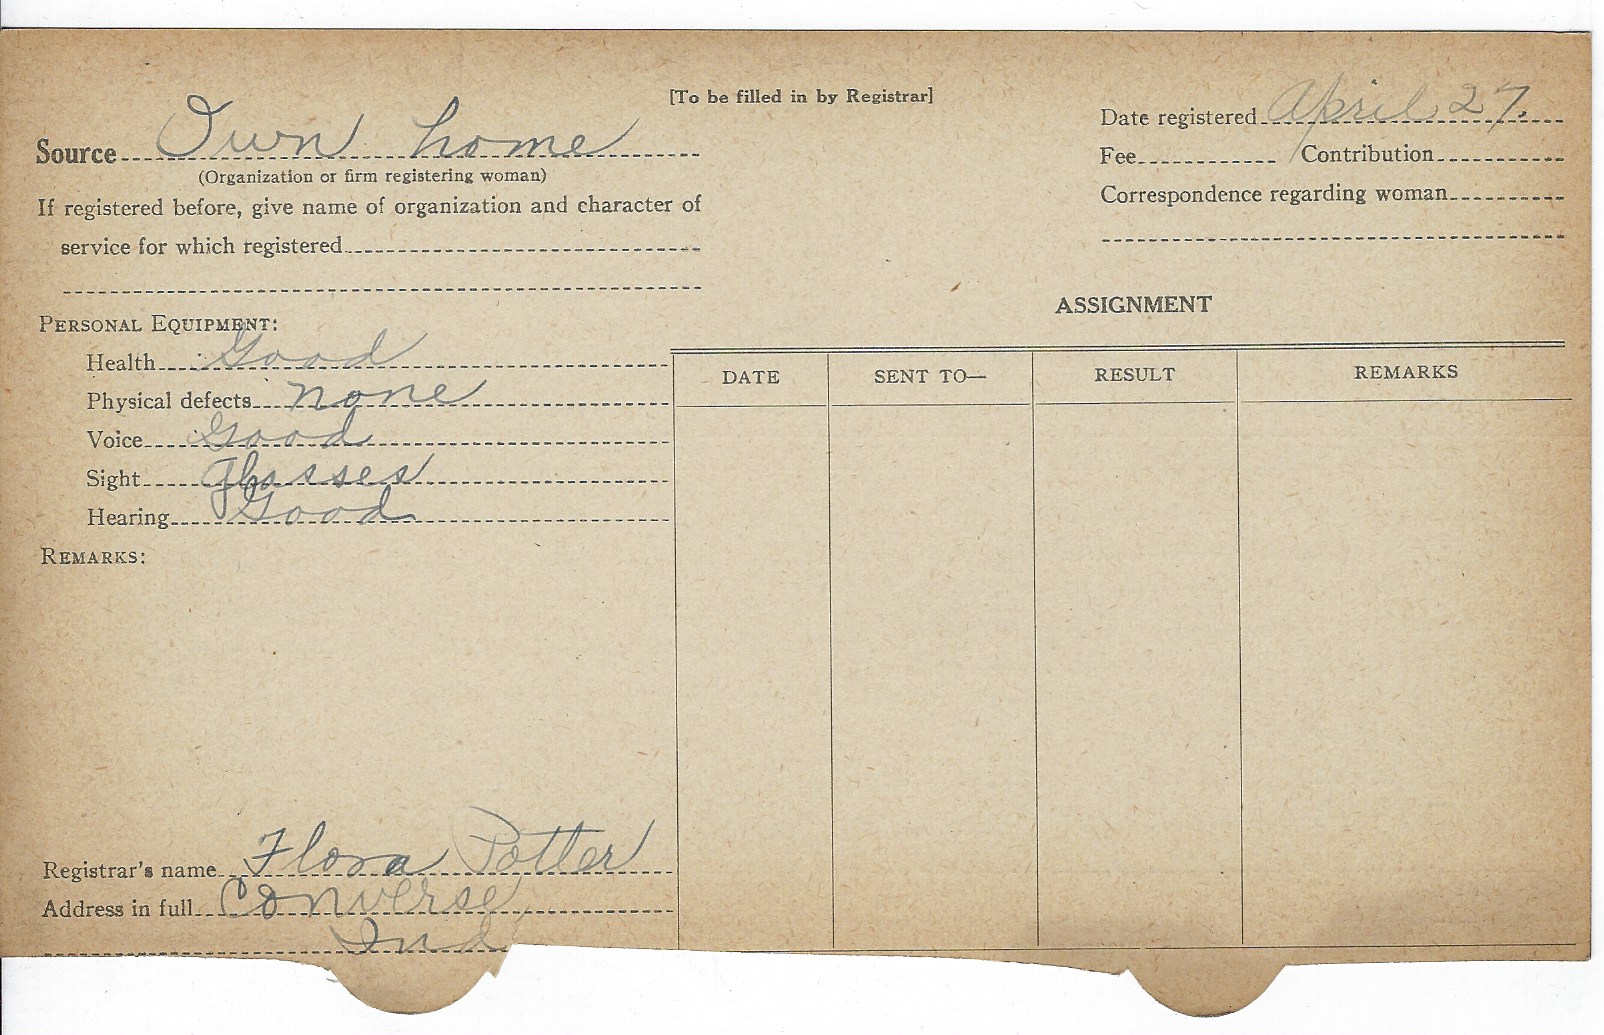 [To be filled in by Registrar]
Source Own home
(Organization or firm registering woman)
If registered before, give name of organization and character of
service for which registered
Date registered April 27.
Fee Contribution
Correspondence regarding woman
PERSONAL EQUIPMENT:
Health Good
Physical defects none
Voice Good
Sight Glasses
Hearing Good
REMARKS:
Registrar's name Flora Potter
Address in full Converse
Ind
ASSIGNMENT
DATE SENT TO— RESULT REMARKS